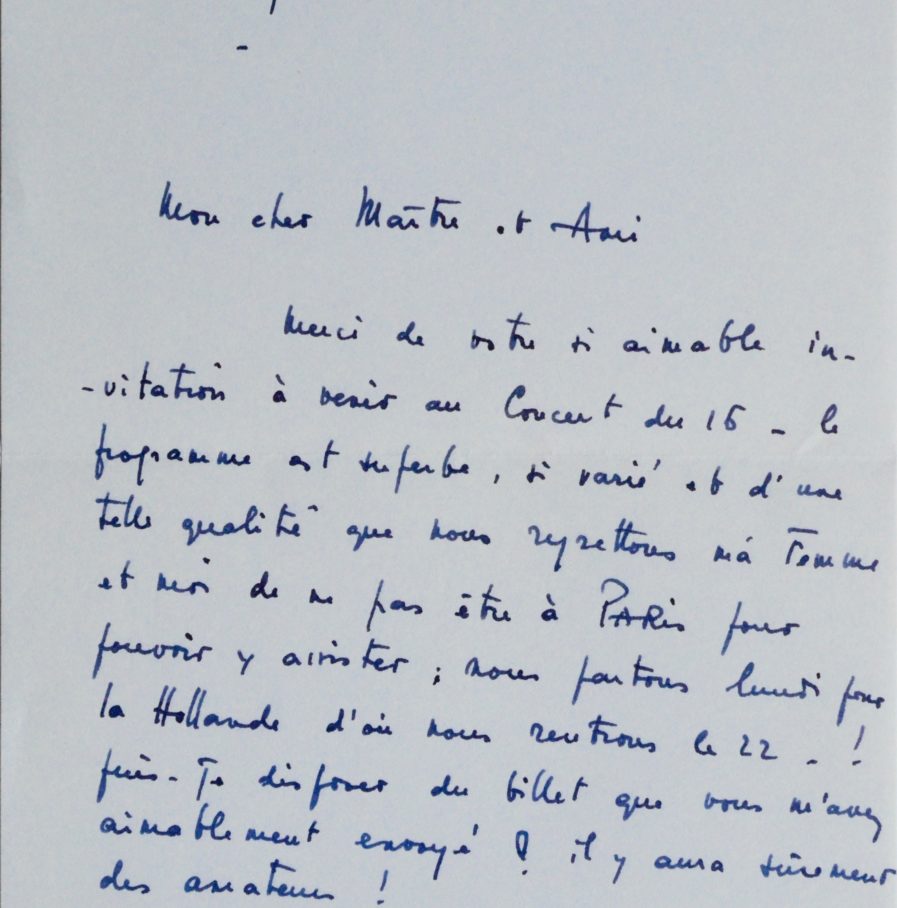 Mon cher Maître et Ami
Merci de votre si aimable in-
-vitation à venir au Concert du 16 - le
programme est superbe, si varié et d'une
telle qualité que nous regrettons ma Femme
et moi de ne pas être à PARIS pour
pouvoir y assister ; nous partons lundi pour
la Hollande d'où nous rentrons le 22 - !
puis-Je disposer du billet que vous m'avez
aimablement envoyé ? il y aura sûrement
des amateurs !